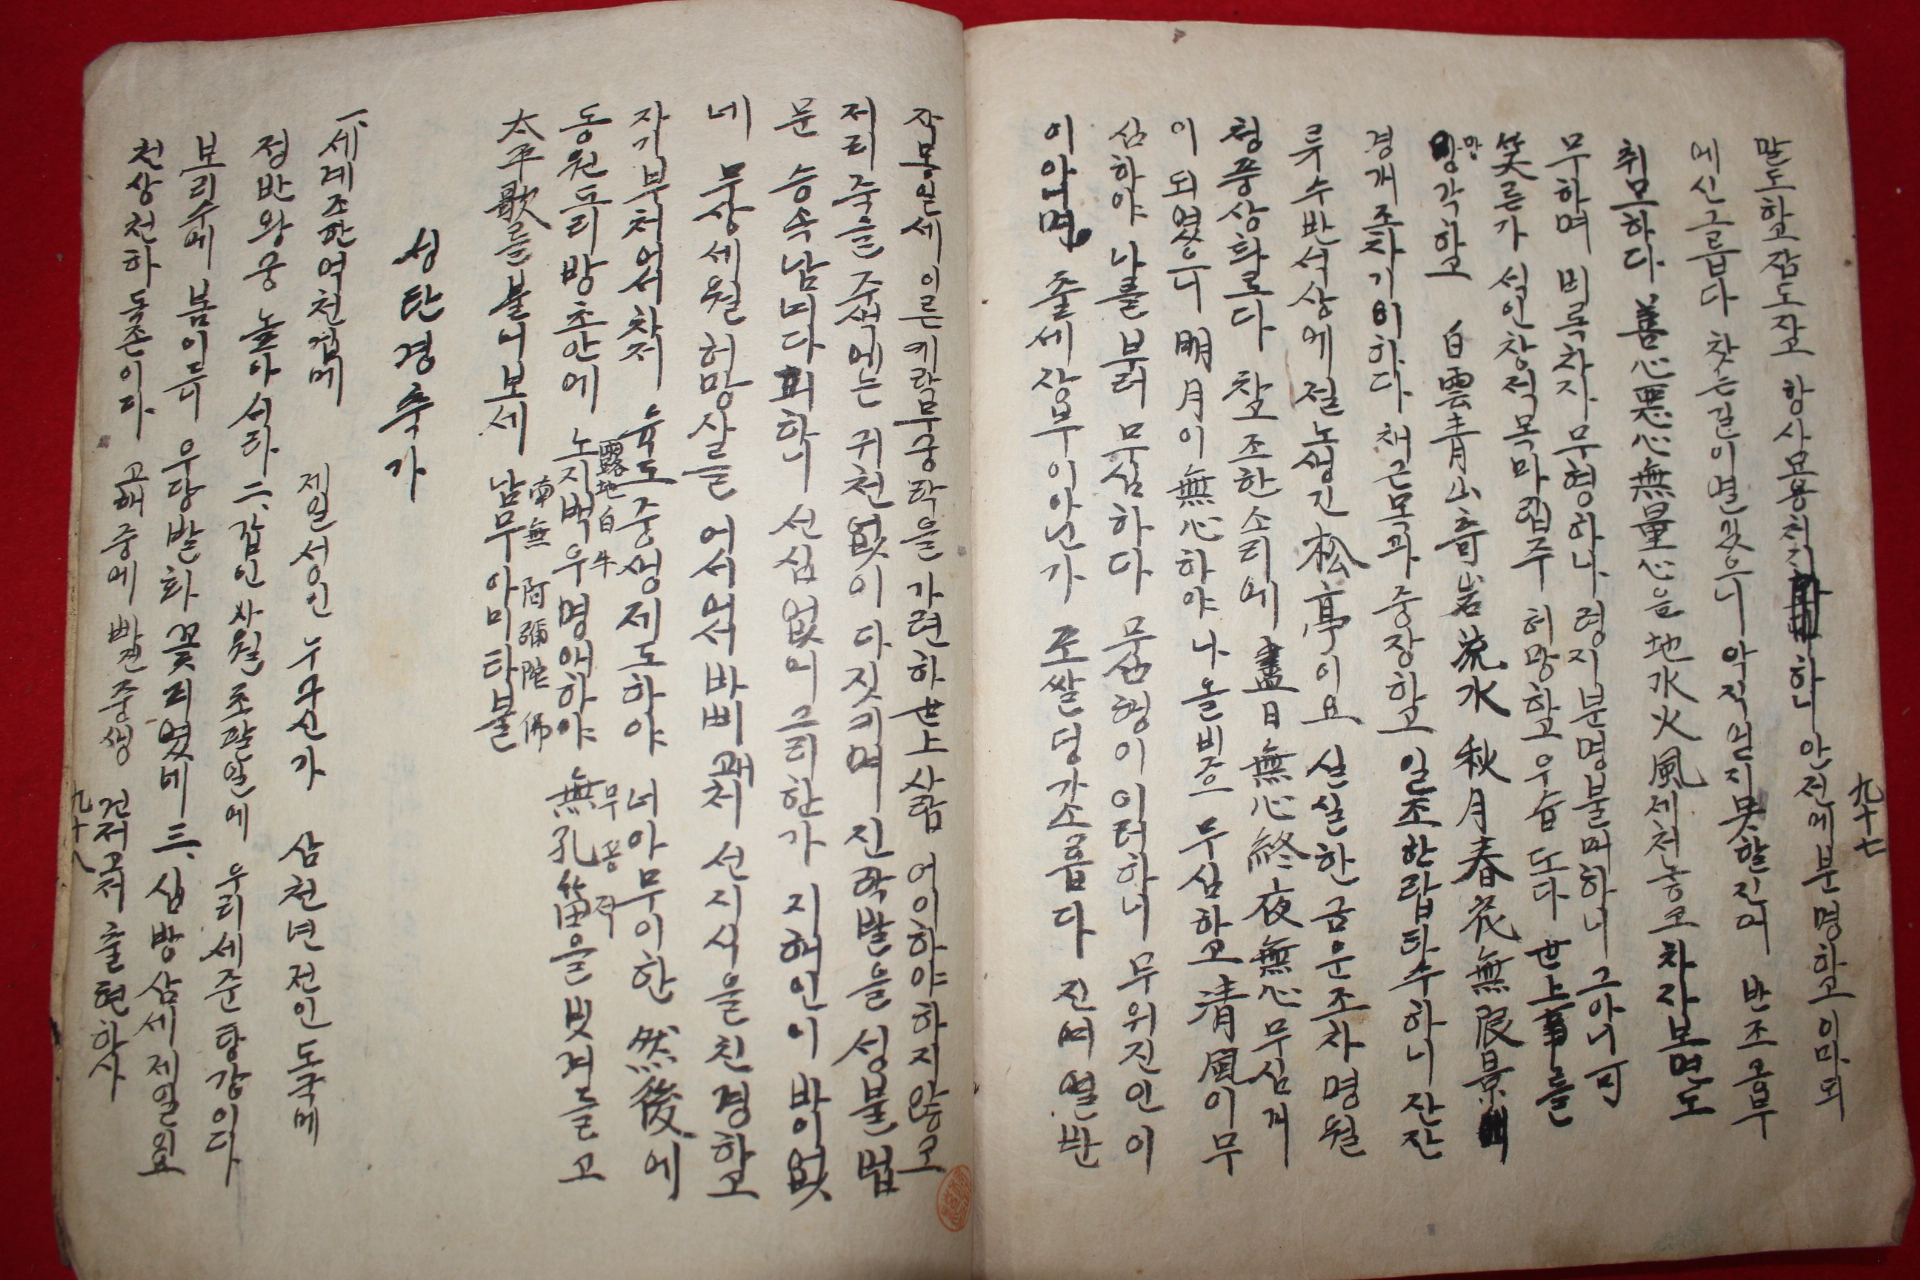 九十七
말도하고잠도자고 항사묘용처처하니 안전에분명하고이마되
에신그릅다 찻는길이열잇으니 아직얻지못할진여 반조공부
취모하다. 善心惡心無量心을 地水火風제처놓고 차자보면도
무하며 비록차자 무형하나 령지분명불매하니 그아니可
笑른가 석인창적목마립주 허망하고 우습도다 世上事를
망각하고 白雲靑山奇岩流水 秋月春花無限景
경개조차기이하다 채근목과 중장하고 일조한랍타수하니 잔잔
류수반석상에 절노생긴松亭이요 실실한금운조차 명월
청풍상화로다 찰조한소리에 盡日無心終夜無心무심게
이 되엿으니 明月이無心하야 나올비츠 무심하고淸風이무
심하야 나를부러 무심하다 무심행이 이러하니 무위진인이
이아니면 출세장부이아닌가 조쌀덩가소롭다 진여열반
자못일세 이른키락무궁락을 가련하世上사람 어이하야하지안는고
저리죽을중색에는 귀천없이 다짓키며 진락발을성불법
문 승속남녀다피하니 선심없이 그리한가 지혜인이 바이없
네 무상세월허망사를 어서어서바삐깨처 선지식을친경하고
자기부처어서차저 육도중생제도하야 너아무이한 然後에
동원도리방초안에 노지백우명에하야 無孔笛을빗겨들고
露地白牛
무공적
太平歌를불너보세 남무아미타불
南無 阿彌陀佛
성탄경축가
一、세계조한억천겁에 제일성인 누구신가 삼천년전인도국에
정반왕궁 놀아서라 二、갑인사월초팔일에 우리세준탕강이다
보리수에 봄이르 우담발화 꽃피엿네 三、십방삼세제일요
천상천하독존이다 고해중에 빠진중생 건저고저 출현하사
九十八